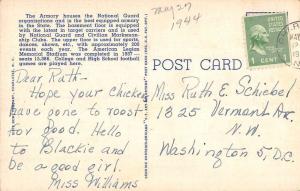 The Armory houses the National Guard
organizations and is the best equipped armory
in the State. The basement floor is equipped
with the latest in target carriers and is used
by National Guard and Civilian Marksman-
ship Clubs. The upper floor is used for sports,
dances, shows, etc., with approximately 200
events each year. The American Legion
Memorial Stadium, completed in 1937,
seats 15,388. College and High School football
games are played here.
May 27
1944
1 CENT
POST CARD
Dear Ruth—
Hope your chickens
have gone to roost
for good. Hello
to Blackie and
be a good girl.
Miss Williams
Miss Ruth E. Schiebel
1325 Vermont Av.
N.W.
Washington 5, D.C.